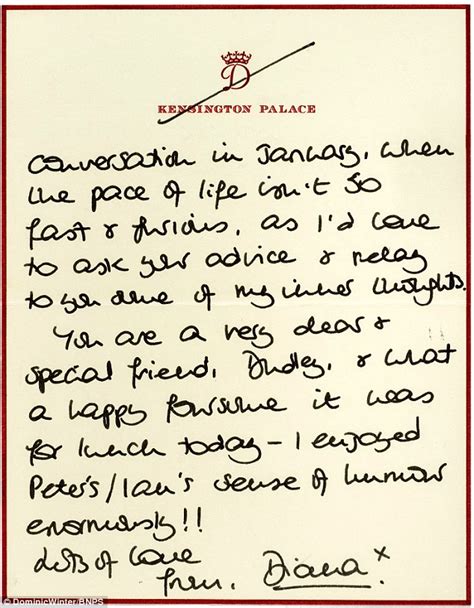 D
KENSINGTON PALACE
conversation in January, when
the pace of life isn't so
fast & furious, as I'd love
to ask your advice & relay
to you some of my inner thoughts.
You are a very dear &
special friend, Dudley, & what
a happy foursome it was
for lunch today - I enjoyed
Peter's/Ian's sense of humour
enormously!!
Lots of love
from, Diana x
© DominicWinter/BNPS